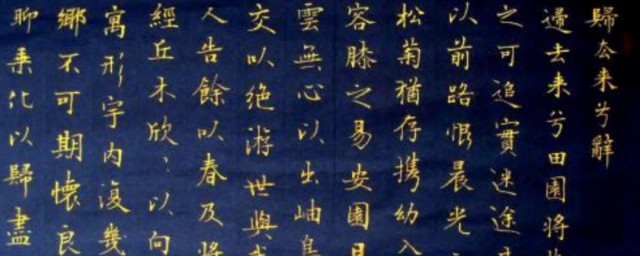 歸去来兮辭
歸去来兮田園將
之可追實迷途
以前路恨晨光
松菊猶存携幼入
容膝之易安園日
雲無心以出岫鳥
交以绝游世與
人告餘以春及將
經丘木欣〻以向
寓形宇内復幾
鄉不可期懷良
聊乘化以歸盡